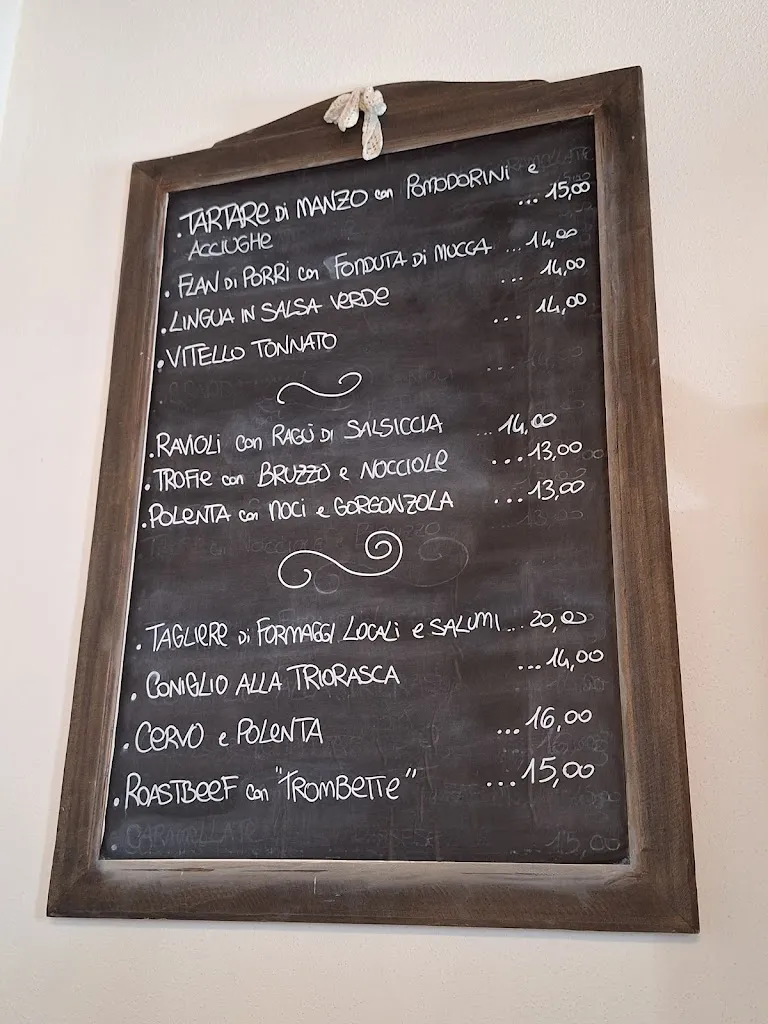 . TARTARE Di MANZO con POMODORINI e ... 15,00
ACCIUGHE
. FLAN Di PORRI con FONDUTA Di MUCCA ... 14,00
. LINGUA IN SALSA VERDE ... 14,00
. VITELLO TONNATO ... 14,00
. RAVIOLI con RAGÙ Di SALSICCIA ... 14,00
. TROFIE con BRUZZO e NOCCIOLE ... 13,00
. POLENTA con NOCI e GORGONZOLA ... 13,00
. TAGLIERE Di FORMAGGI LOCALI e SALUMI ... 20,00
. CONIGLIO ALLA TRIORASCA ... 14,00
. CERVO e POLENTA ... 16,00
. ROASTBEEF con "TROMBETTE" ... 15,00